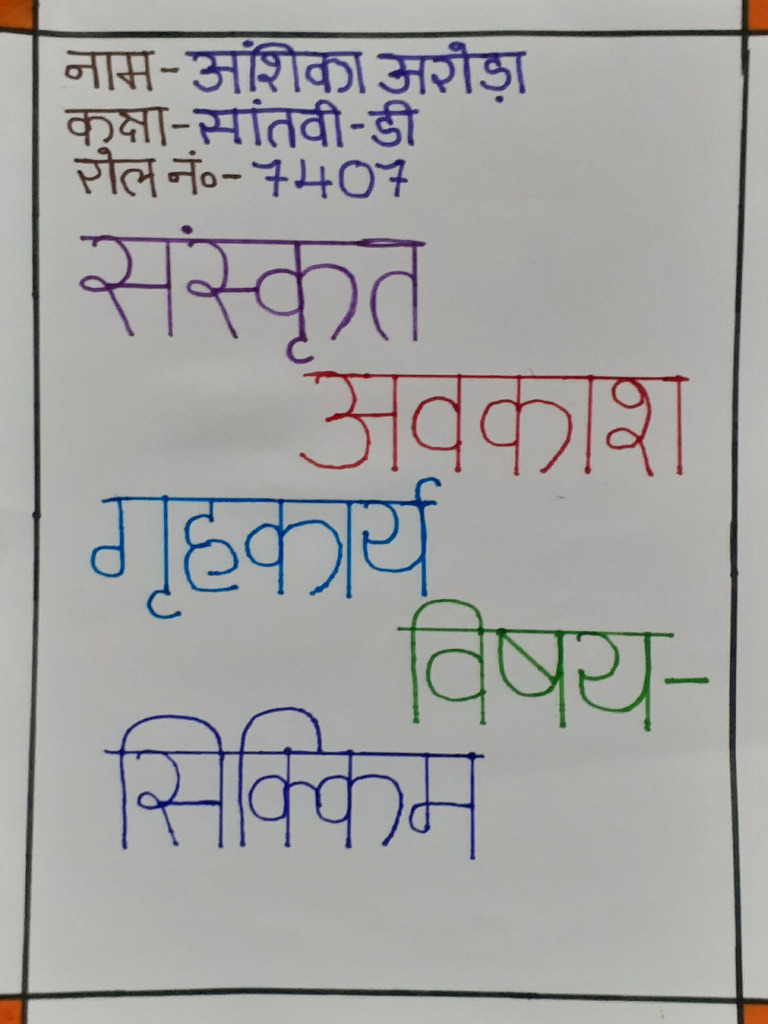 नाम- आंशिका अरोड़ा
कक्षा-सांतवी-डी
रोल नं०- 7407
संस्कृत
अवकाश
गृहकार्य
विषय-
सिक्किम